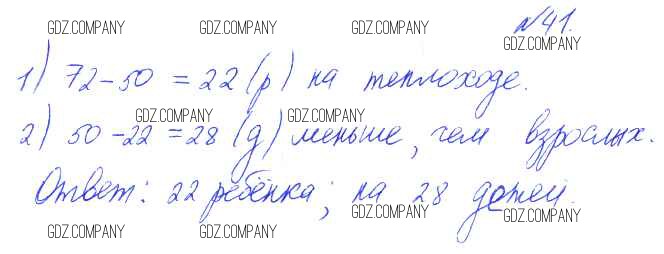 GDZ.COMPANY GDZ.COMPANY GDZ.COMPANY №41.
GDZ.COMPANY
1) 72-50 = 22 (р) на теплоходе.
GDZ.COMPANY GDZ.COMPANY GDZ.COMPANY
GDZ.COMPANY GDZ.COMPANY
2) 50-22 = 28 (д) меньше, чем взрослых.
GDZ.COMPANY GDZ.COMPANY GDZ.COMPANY
Ответ: 22 ребёнка; на 28 детей.
GDZ.COMPANY GDZ.COMPANY
GDZ.COMPANY GDZ.COMPANY GDZ.COMPANY